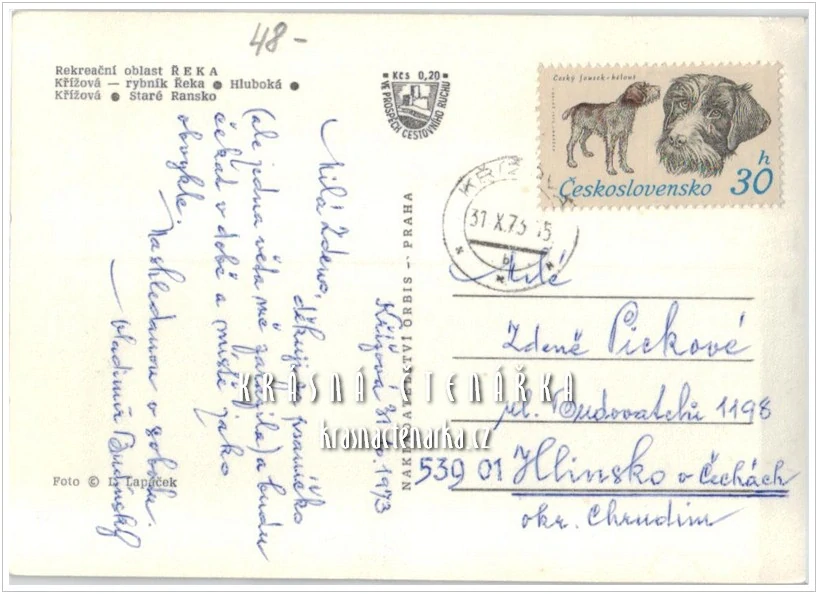 48-
Rekreační oblast ŘEKA
Křížová — rybník Řeka ● Hluboká ●
Křížová ● Staré Ransko
Kčs 0,20
VE PROSPĚCH CESTOVNÍHO RUCHU
Český fousek-hlava
Československo 30 h
31.X.73-15
b
NAKLADATELSTVÍ ORBIS — PRAHA
Křížová 31.10.1973
Milá Zdeno,
děkuji za psaníčko
(ale jedna věta mě zarazila) a budu
čekat v době a místě jako
obvykle.
Nashledanou v sobotu.
Vladimír Budínský
Milé
Zdeně Pickové
ul. Budovatelů 1198
539 01 Hlinsko v Čechách
okr. Chrudim
Foto © L. Lapáček
KRÁSNÁ ČTENÁŘKA
krasnactenarka.cz